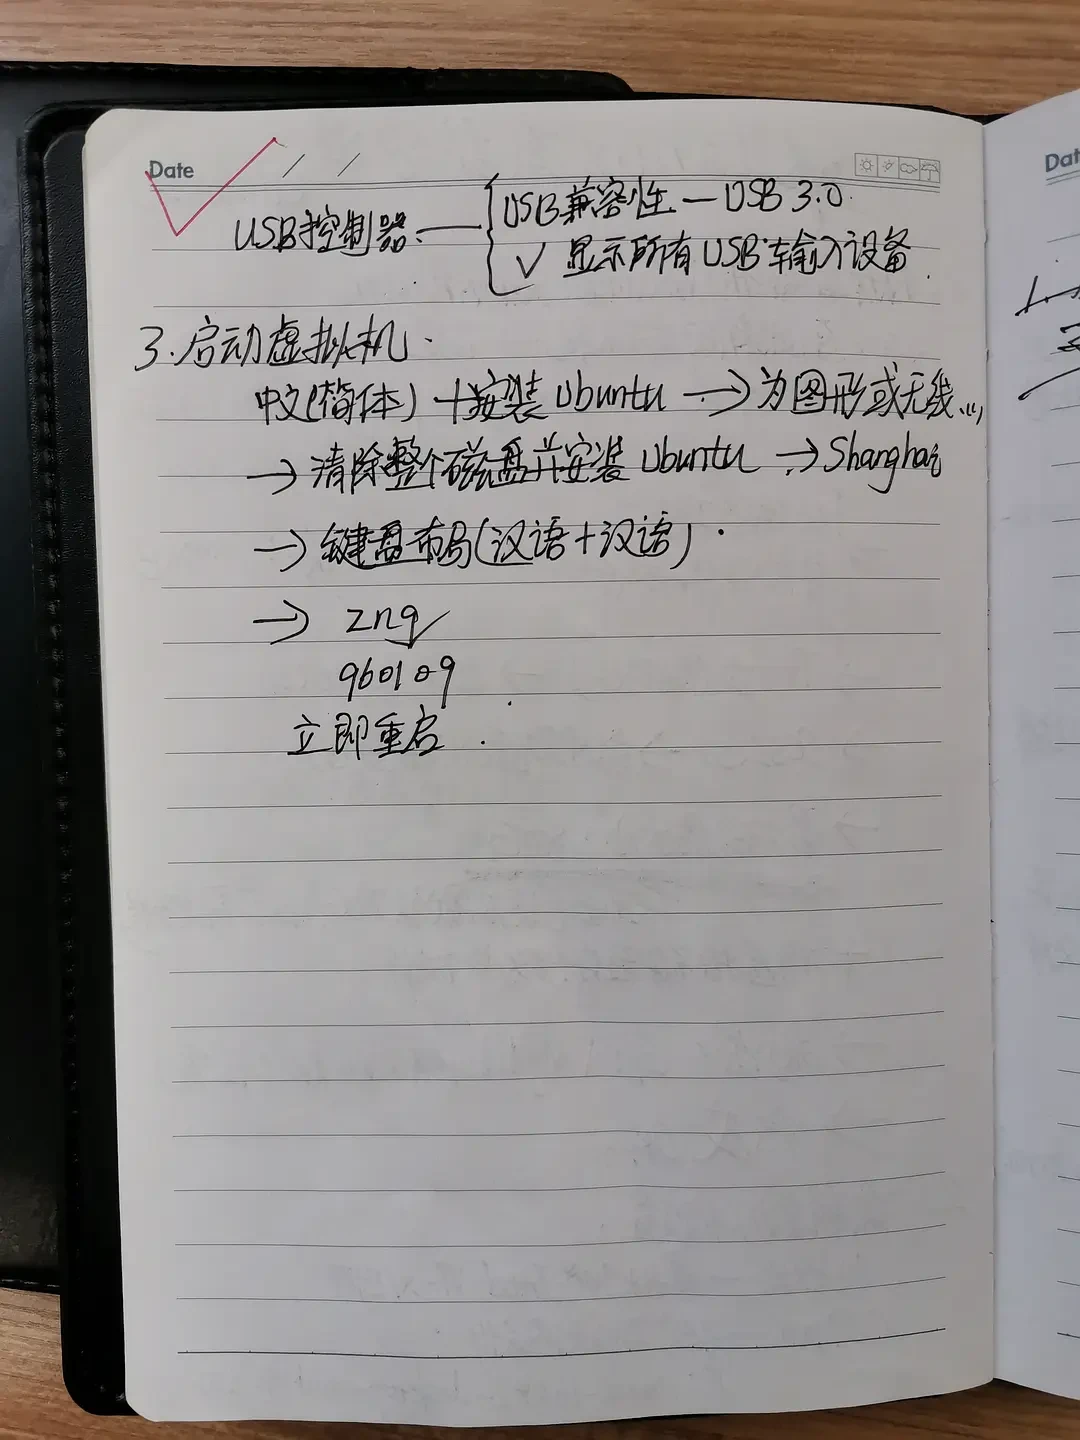 Date / /
USB控制器 — { USB兼容性 — USB 3.0
✓ 显示所有USB输入设备.
3.启动虚拟机.
中文(简体) + 按装Ubuntu → 为图形或无线...
→ 清除整个磁盘并安装Ubuntu → Shanghai
→ 键盘布局(汉语+汉语).
→ znq
960109
立即重启.
Dat
1.